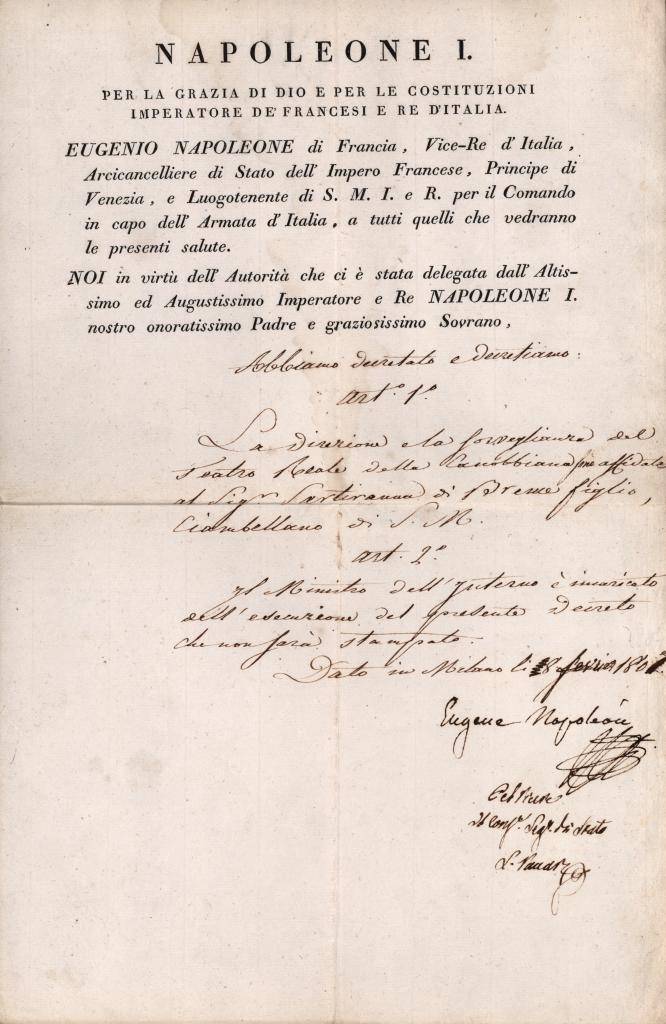 NAPOLEONE I.
PER LA GRAZIA DI DIO E PER LE COSTITUZIONI
IMPERATORE DE' FRANCESI E RE D'ITALIA.
EUGENIO NAPOLEONE di Francia, Vice-Re d'Italia,
Arcicancelliere di Stato dell' Impero Francese, Principe di
Venezia, e Luogotenente di S. M. I. e R. per il Comando
in capo dell' Armata d'Italia, a tutti quelli che vedranno
le presenti salute.
NOI in virtù dell' Autorità che ci è stata delegata dall' Altis-
simo ed Augustissimo Imperatore e Re NAPOLEONE I.
nostro onoratissimo Padre e graziosissimo Sovrano,
Abbiamo decretato e decretiamo:
Art.º 1.º
La direzione e la sorveglianza del
Teatro Reale della Canobbiana affidata
al Sig.r Sartiranna di Breme figlio,
Ciambellano di S. M.
art. 2.º
Il Ministro dell' Interno è incaricato
dell' esecuzione del presente Decreto
che non sarà stampato.
Dato in Milano li
Eugene Napoléon
Il Cons.r Seg.o di Stato